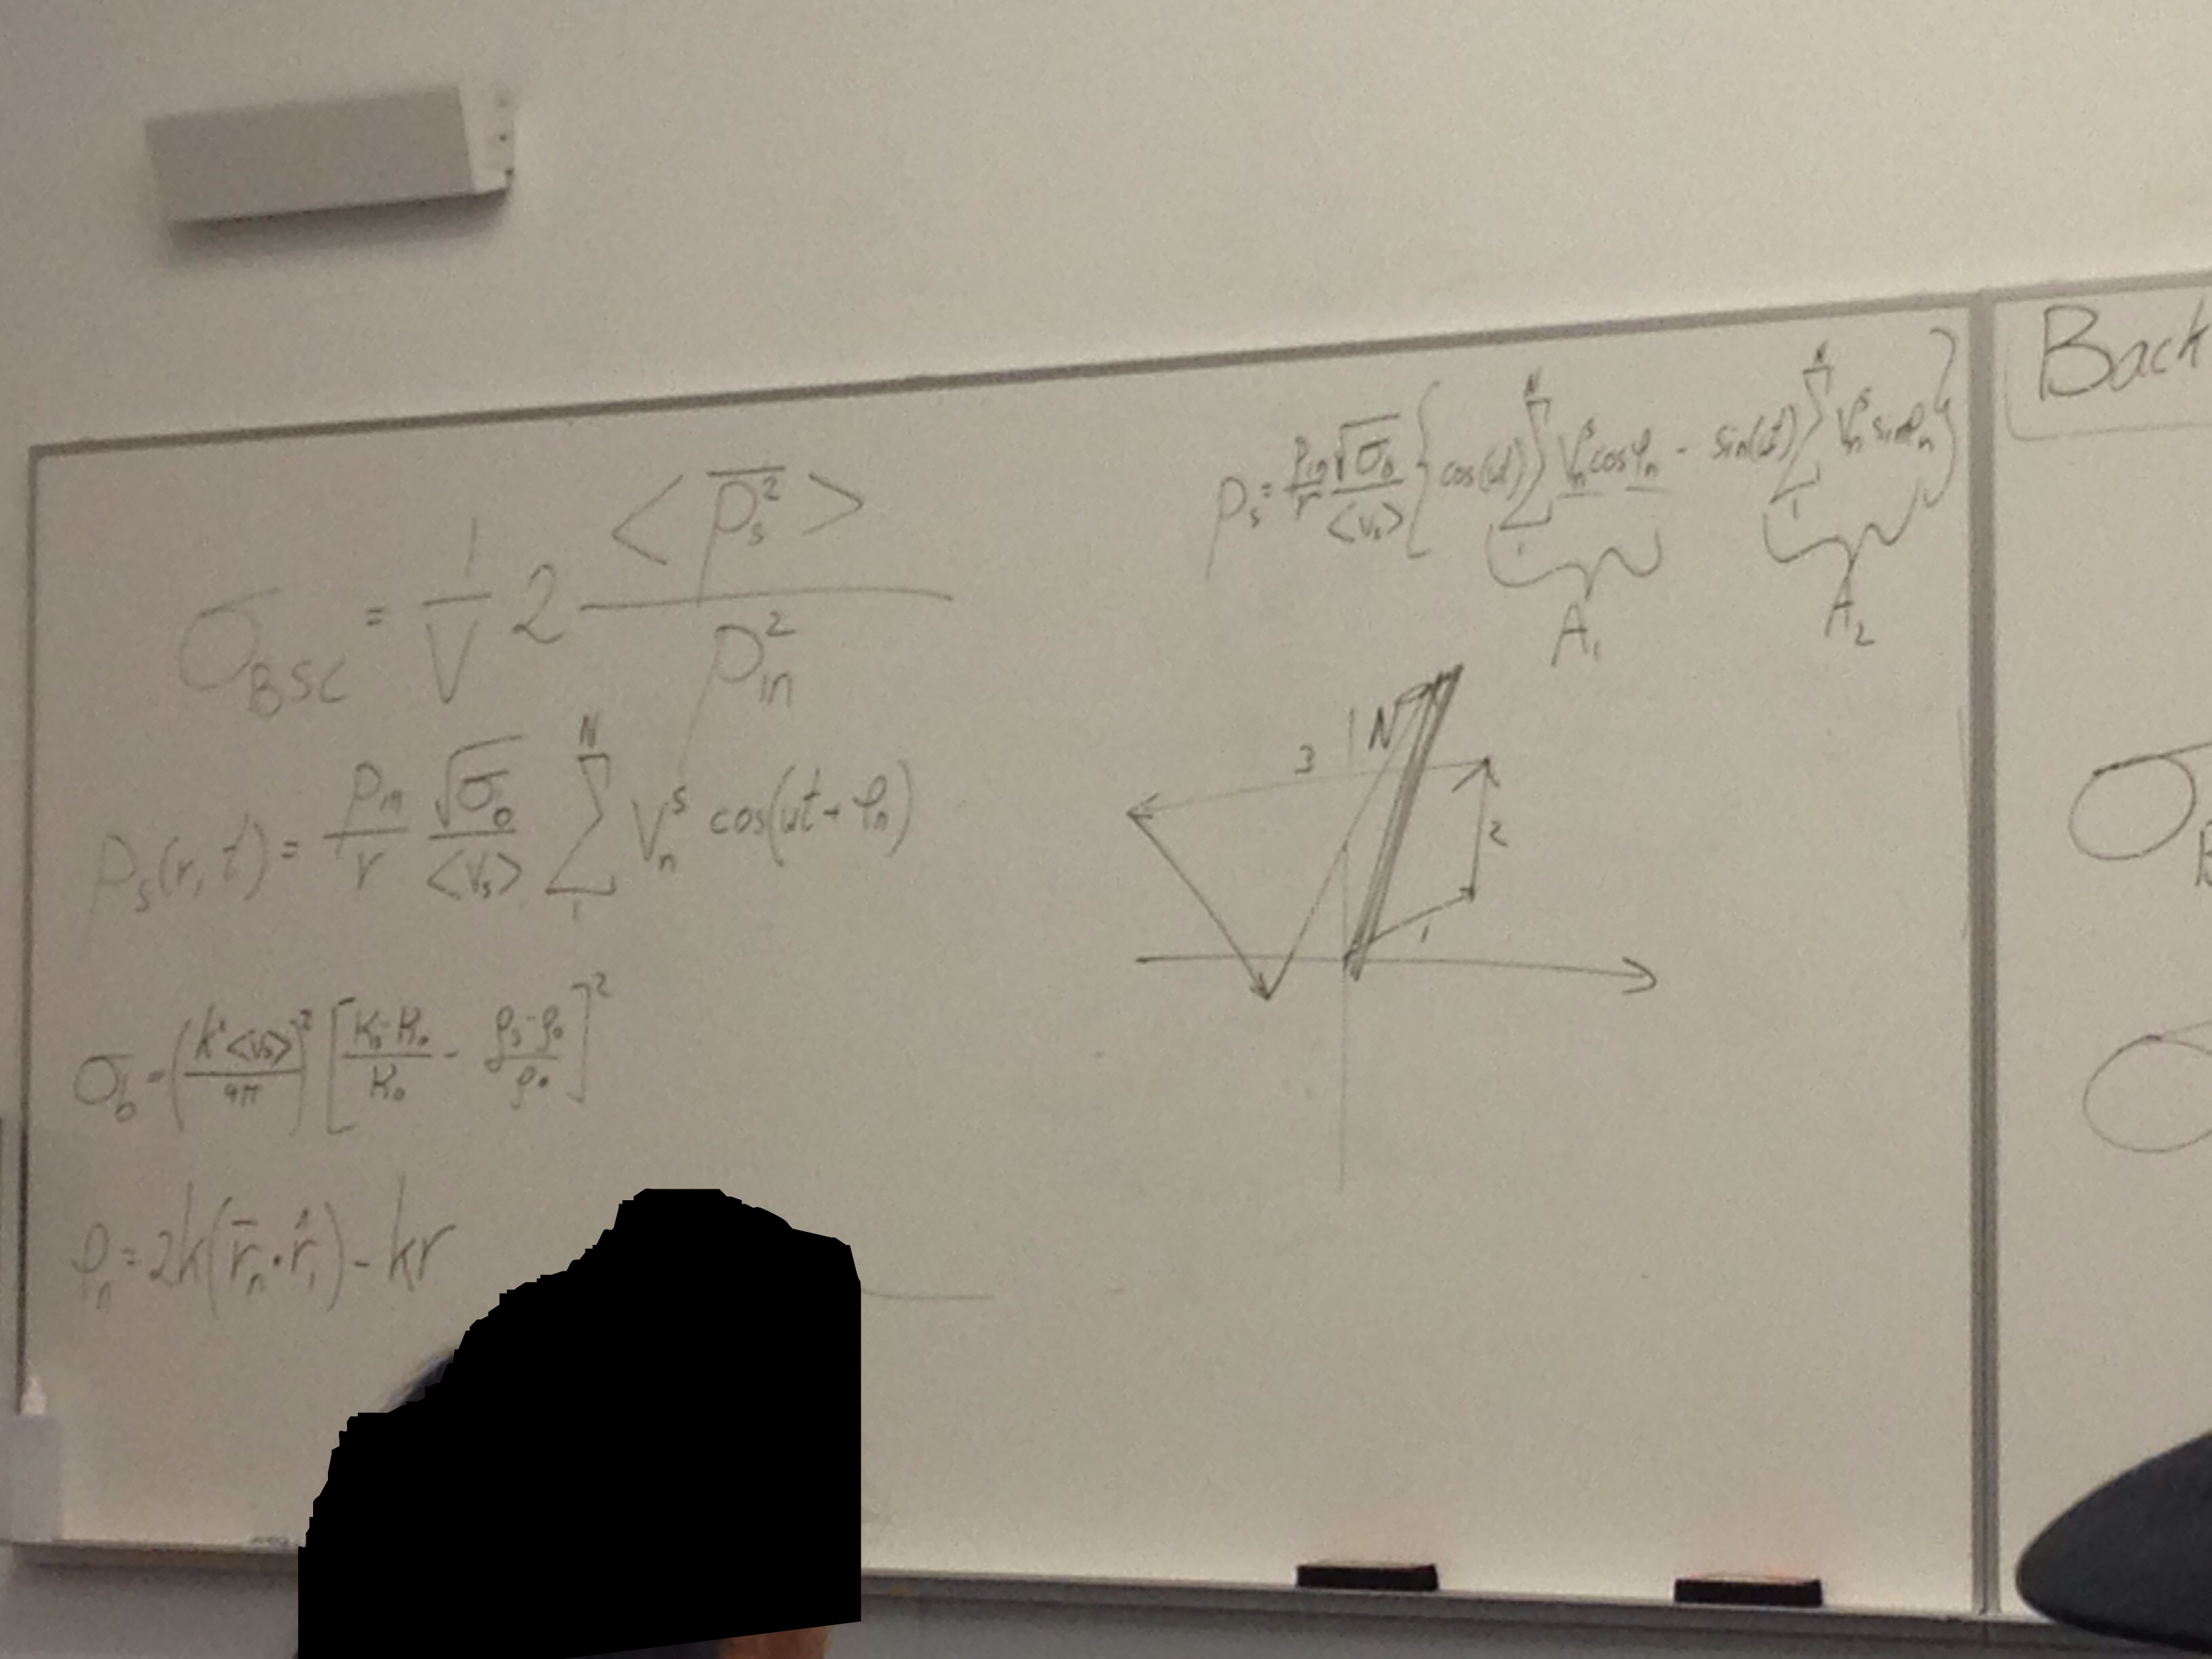 σ_BSC = 1/V 2 <p̅_s²>/p_in²
p_s(r,t) = p_in/r √σ_b/<V_s> Σ_1^N V_n^s cos(ωt + φ_n)
σ_b = (k²<V_s>/4π)² [K_s-K_o/K_o - ρ_s-ρ_o/ρ_o]²
φ_n = 2k(r̄_n · r̂_i) - kr
p_s = p_in/r √σ_b/<V_s> { cos(ωt) Σ_1^N V_n^s cosφ_n - sin(ωt) Σ_1^N V_n^s sinφ_n }
A_1 A_2
3 N
2
1
Back
σ_B